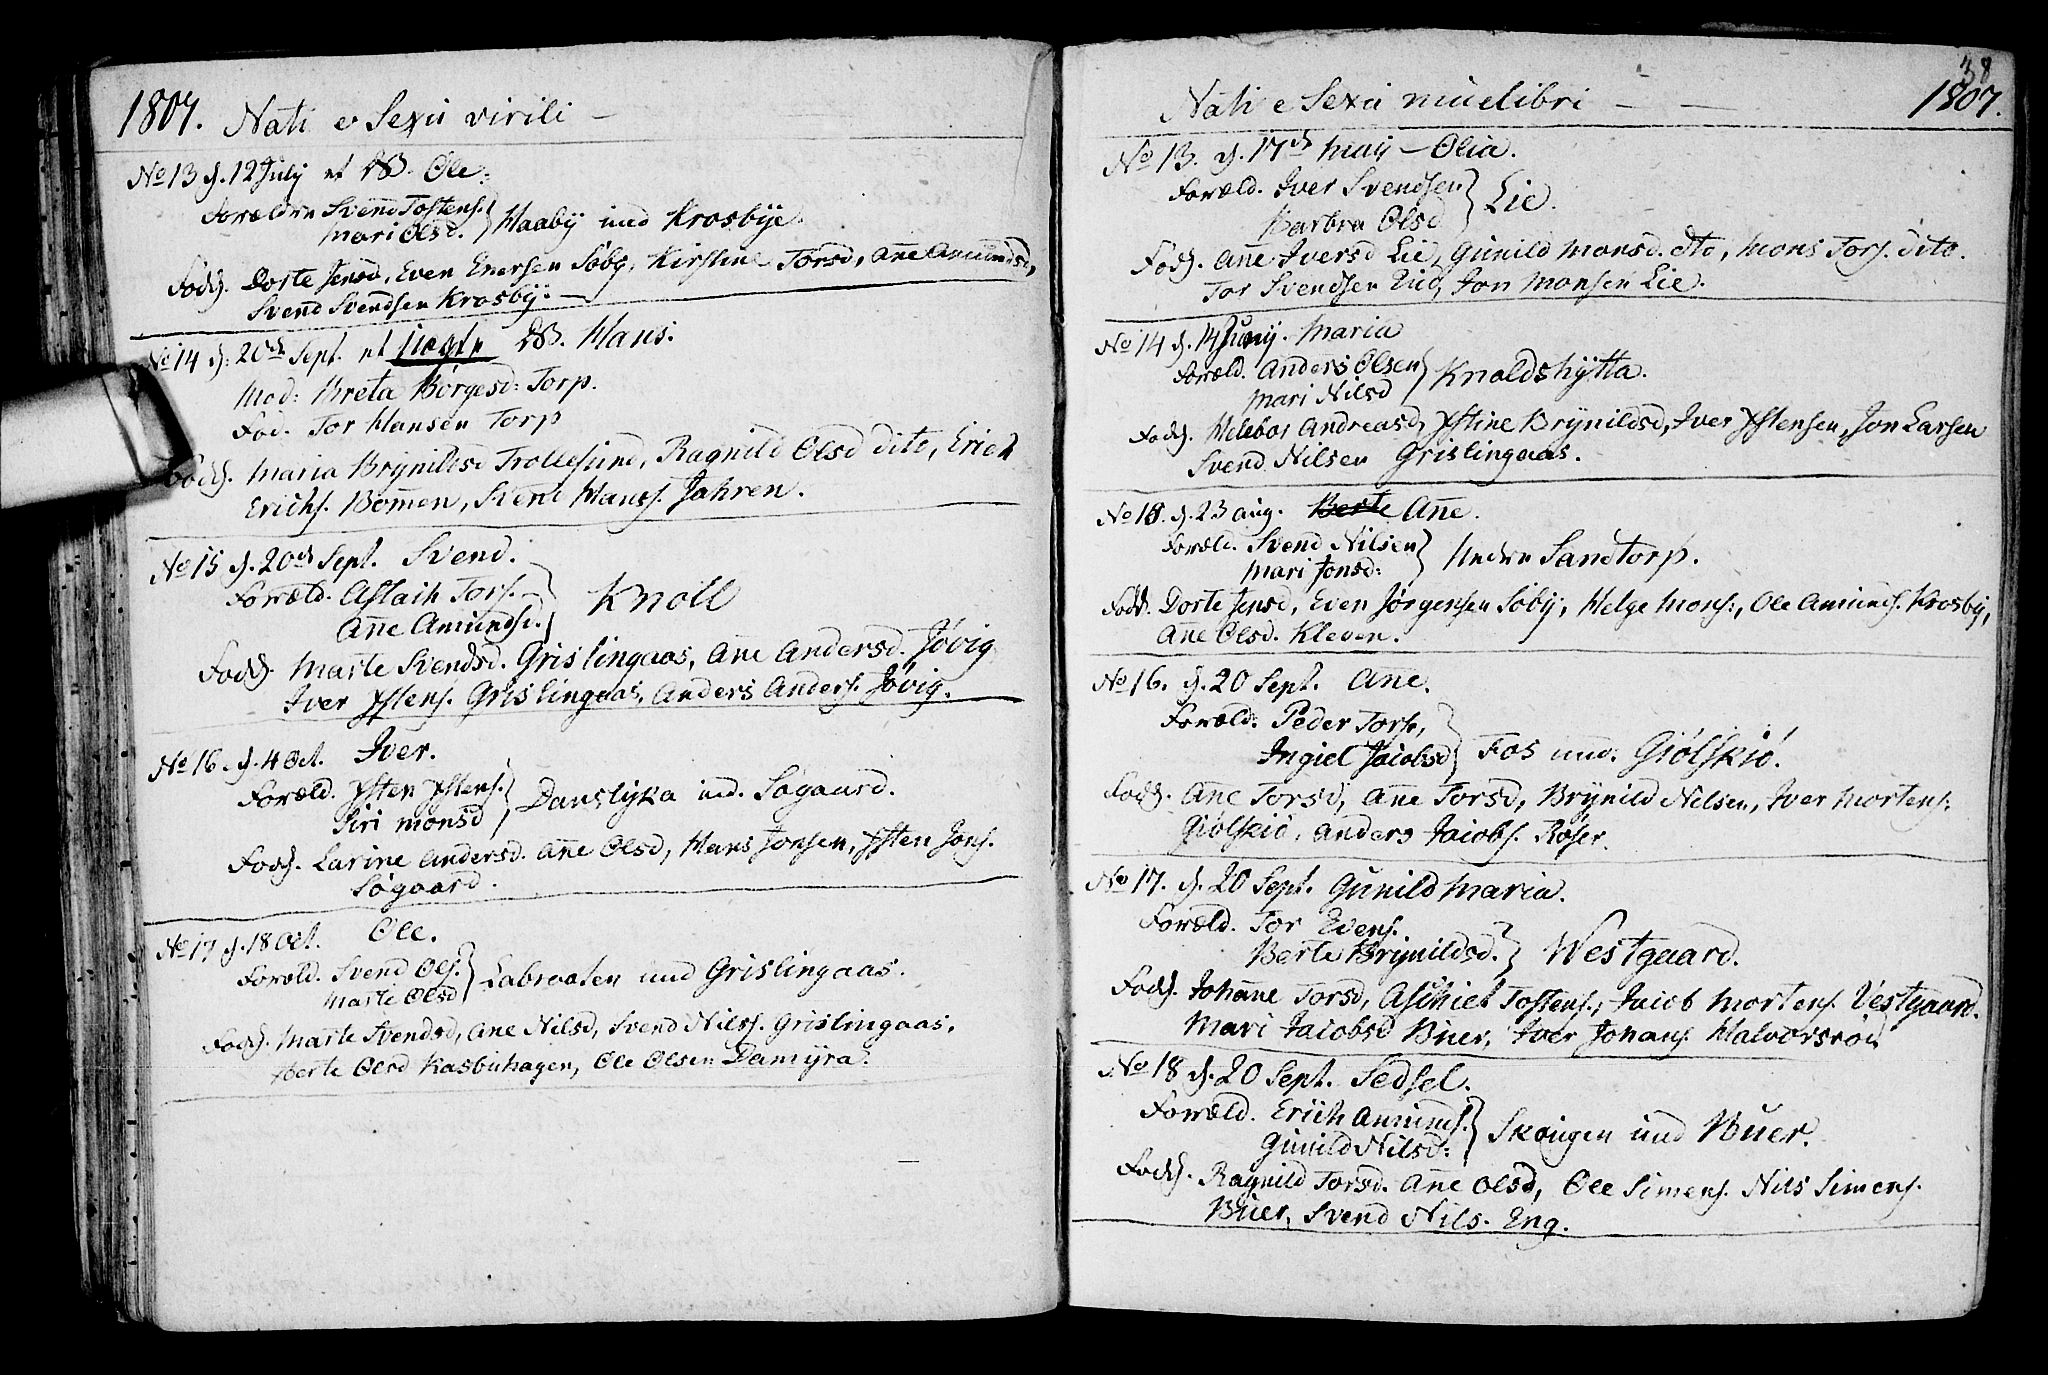 1807. Nati e Sexu virili —
No 13 d. 12 July et DB. Ole.
Forældre Svend Tostens.
Mari Olsd. } Haaby und Krosbye.
Fadd. Dorte Jensd, Even Enersen Soby, Kirstine Torsd, Añe Amundsd,
Svend Svendsen Krosby. —
No 14 d. 20de Sept. et uægte DB. Hans.
Mod: Breta Borgesd: Torp.
Fad. Tor Hansen Torp
Fadd. Maria Brynildsd Trollesund, Ragnild Olsd dito, Erich
Erichs. Bomen, Svend Hans. Jahren.
No 15 d. 20de Sept. Svend.
Foræld. Aslaih Tors.
Añe Amundsd. } Knoll
Fadd. Marte Svendsd. Grislingaas, Añe Andersd. Jövig
Iver Ystens. Grislingaas, Anders Anders. Jövig.
No 16. d. 4 Oct. Iver.
Foræld. Ysten Ystens.
Siri Monsd } Danslyka und. Sögaard.
Fadd. Larine Andersd. Añe Olsd, Hans Jonsen, Ysten Jons.
Sögaard.
No 17 d. 18 Oct. Ole.
Foræld. Svend Ols.
Marte Olsd } Labraaten und Grislingaas.
Fadd. Marte Svendsd, Ane Nilsd, Svend Nilss. Grislingaas,
Berte Olsd Kasbuhagen, Ole Olsen Damyra.
38
Nati e Sexu muelibri — — 1807.
No 13. d. 17de May — Olia.
Foræld. Iver Svendsen
Barbra Olsd } Lie.
Fadd. Añe Iversd Lie, Gunild Monsd. dto, Mons Tors. dito.
Tor Svendsen Eid, Jon Monsen Lie.
No 14 d. 14 Juny. Maria
Foræld. Anders Olsen
Mari Nilsd } Knoldshytta.
Fadd. Helebor Andreasd, Ystine Brynildsd, Iver Ystensen, Jon Larsen
Svend Nilsen Grislingaas.
No 15. d. 23 Aug. Berte Añe.
Foræld. Svend Nilsen
Mari Jonsd: } Nedre Sandtorp.
Fadd. Dorte Jensd, Even Jörgensen Soby, Helge Mons:, Ole Amunds. Krosby,
Añe Olsd. Kleven.
No 16. d. 20 Sept. Añe.
Foræld: Peder Tors.,
Ingiel Jacobsd } Fos und. Giölskiö.
Fadd. Ane Torsd, Añe Torsd, Brynild Nilsen, Iver Mortens.
Giölskiö, Anders Jaiobs. Röser.
No 17. d. 20 Sept. Gunild Maria.
Foræld. Tor Evens.
Berte Brynildsd. } Westgaard.
Fadd. Johañe Torsd, Aschiel Tostens., Jacob Mortens. Vestgaard.
Mari Jacobsd Buer, Iver Johans. Halvorsröd
No 18 d. 20 Sept. Sedsel.
Foræld. Erich Amunds.
Gunild Nilsd: } Skougen und Buer.
Fadd. Ragnild Torsd. Añe Olsd, Ole Simens. Nils Simens.
Buer, Svend Nils. Eng.